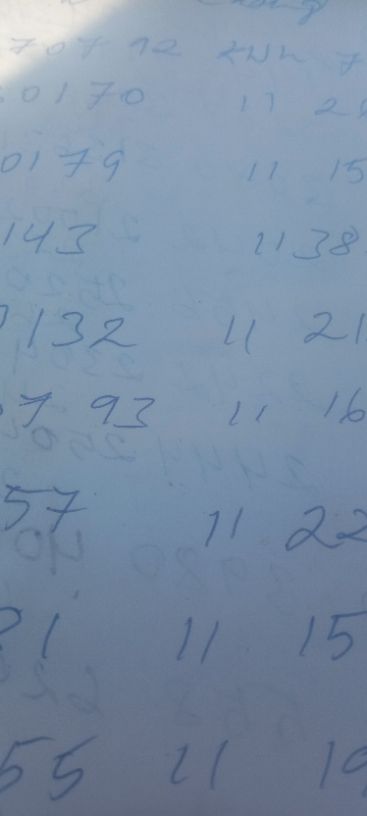 70792 КNK 7
0170 11 2
0179 11 15
143 11 38
132 11 21
7 93 11 16
57 11 22
1 11 15
55 11 19